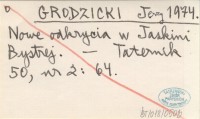 GRODZICKI Jerzy 1974.
Nowe odkrycia w Jaskini
Bystrej. — Taternik
50, nr 2: 64.